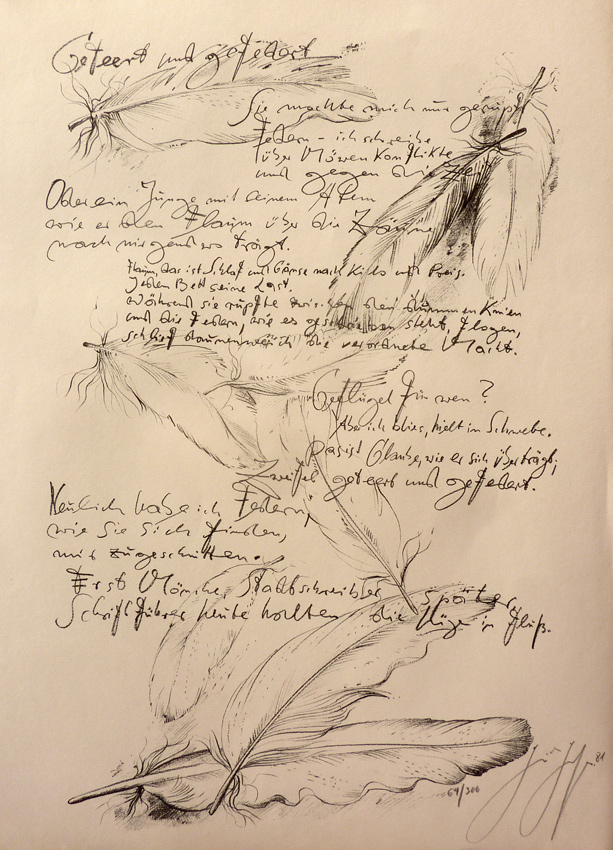 Geteert und gefedert
Sie mochte mich nur gerupft.
Federn – ich schreibe
über Möwen Konflikte
und gegen die Zeit.
Oder ein Junge mit seinem Atem
wie er den Flaum über die Zäune
nach nirgendwo trägt.
Flaum, das ist Schlaf und Gänse nach Kilo und Preis.
Jedem Bett seine Last.
Während sie rupfte zwischen den dummen Knien
und die Federn, wie es geschrieben steht, flogen,
schlief daunenweich die verordnete Macht.
Geflügel für wen?
Aber ich blies, hielt in Schwebe.
Das ist Glaube, wie er sich überträgt;
Zweifel geteert und gefedert.
Neulich habe ich Federn,
wie sie sich finden,
mir zugeschnitten.
Erst Mönche, Stadtschreiber später,
Schriftführer heute halten die Lüge in Fluß.
64/300
81